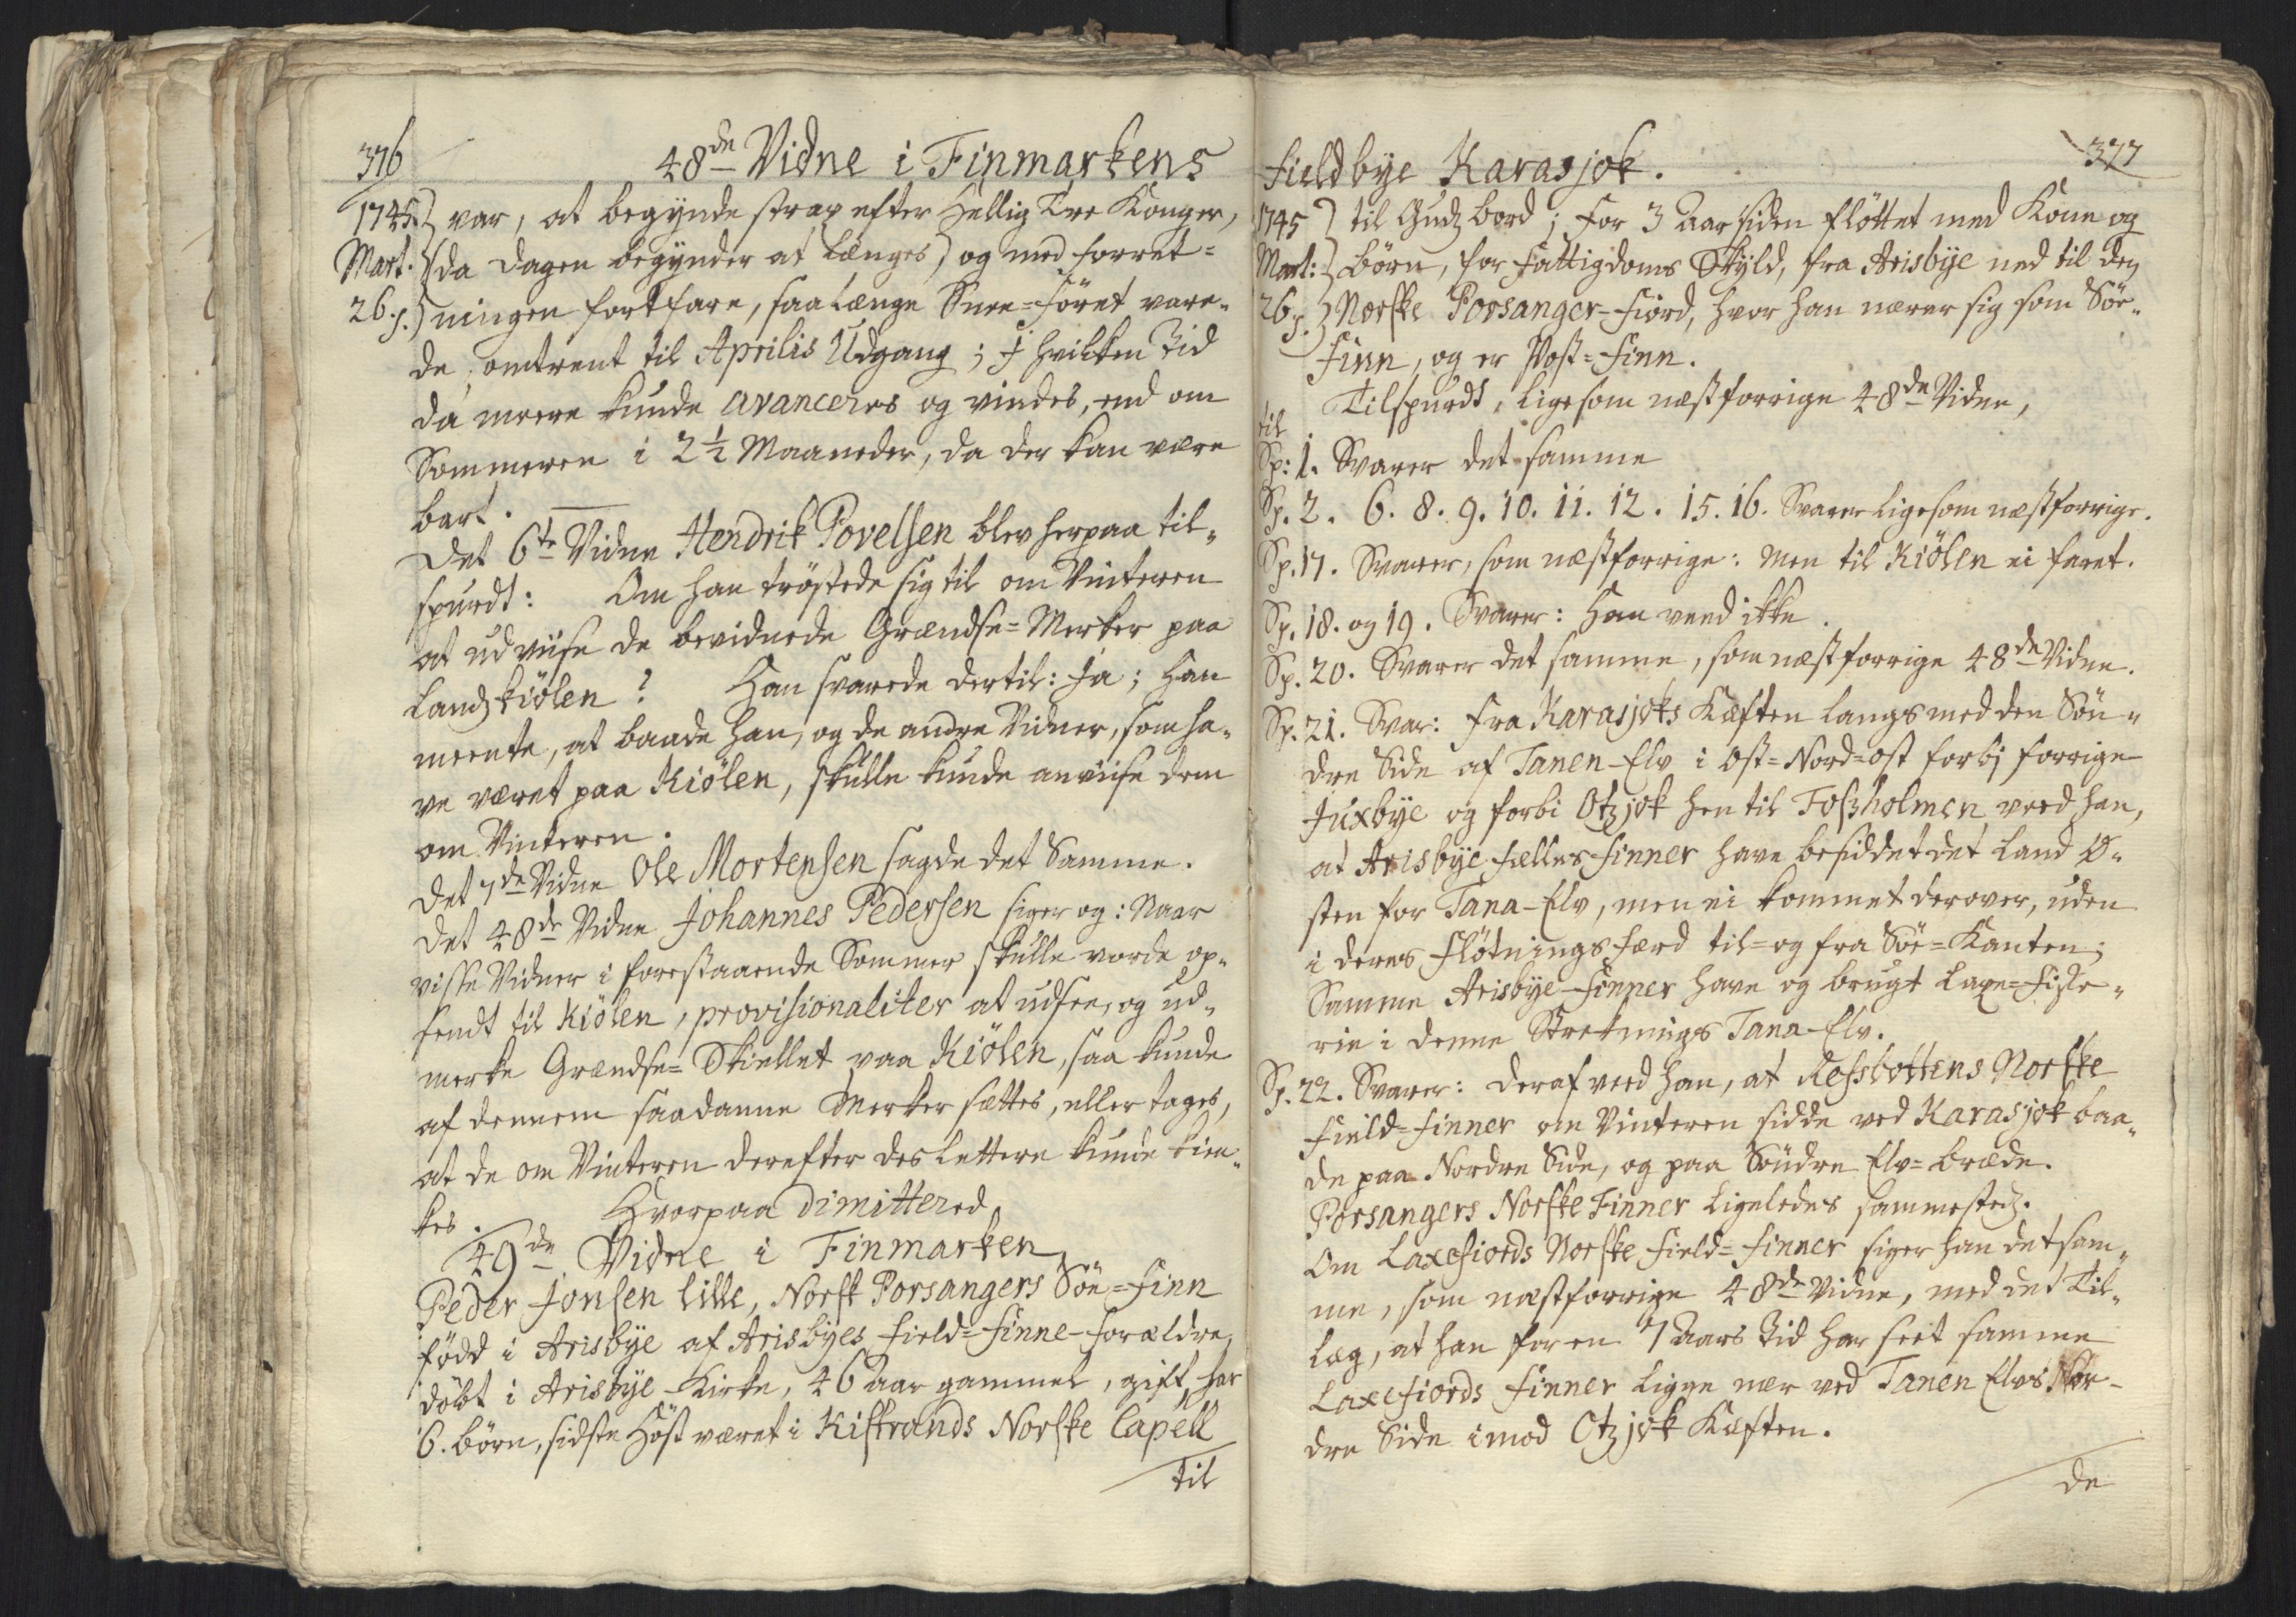 376
48de Vidne i Finmarkens
1745. } var, at begynde strax efter Hellig Tre Konger,
Mart. } (da dagen begynder at længes) og med forret-
26. p. } ningen fortfare, saa længe Snee-föret vare-
de, omtrent til Aprilis Udgang; I hvilken Tid
da meere kunde avanceres og vindes, end om
Sommeren i 2 1/2 Maaneder, da der kan være
bart.
Det 6te Vidne Hendrik Povelsen blev herpaa til-
spurdt: Om han tröstede sig til om Vinteren
at udviise de bevidnede Grændse-Merker paa
Landz kiölen? Han svarede dertil: Ja; han
meente, at baade han, og de andre Vidner, som ha-
ve været paa Kiölen, skulle kunde anviise dem
om Vinteren.
Det 7de Vidne Ole Mortensen sagde det Samme.
Det 48de Vidne Johannes Pedersen siger og: Naar
visse Vidner i forestaaende Sommer skulle vorde op-
sendt til Kiölen, provisionaliter at udsee, og ud-
merke Grændse-Skiellet paa Kiölen, saa kunde
af dennem saadanne Merker sættes, eller tages,
at de om Vinteren derefter des lettere kunde kien-
des. Hvorpaa Dimittered
49de Vidne i Finmarken
Peder Jonsen Lille, Norsk Porsangers Söe-Finn
född i Arisbÿe af Arisbÿes Field-Finne-forældre,
döbt i Arisbÿe-Kirke, 46 Aar gammel, gift, har
6. börn, sidste Höst været i Kistrands Norske Capell
til
377
Fieldbÿe Karasjok.
1745 } til Gudz bord; For 3 Aar siden flöttet med Kone og
Mart: } börn, for fattigdoms Skÿld, fra Arisbÿe ned til den
26 p. } Norske Porsanger-Fiord, hvor han nærer sig som Söe-
Finn, og er Post-Finn.
Tilspurdt, ligesom næstforrige 48de Vidne,
til
Sp: 1. Svarer det samme
Sp. 2. 6. 8. 9. 10. 11. 12. 15. 16. Svarer ligesom næstforrige.
Sp. 17. Svarer, som næstforrige: men til Kiölen ei faret.
Sp. 18. og 19. Svarer: Han veed ikke.
Sp. 20. Svarer det samme, som næstforrige 48de Vidne.
Sp. 21. Svar: Fra Karasjoks Kæften langs med den Sön-
dre Side af Tanen-Elv i Ost-Nord-Ost forbj forrige
Juxbÿe og forbi Otzjok hen til Foszholmen veed han,
at Arisbÿe fælles Finner have besiddet det Land O-
sten for Tana-Elv, men ei kommet derover, uden
i deres Flötnings færd til- og fra Söe-Kanten;
Samme Arisbÿe-Finner have og brugt Laxe-Fiske-
rie i denne Streknings Tana-Elv.
Sp. 22. Svarer: Deraf veed han, at Refsbottens Norske
Field-Finner om Vinteren sidde ved Karasjok baa-
de paa Nordre Side, og paa Söndre Elv-bræde.
Porsangers Norske Finner ligeledes sammestedz.
Om Laxefiords Norske Field-Finner siger han det sam-
me, som næstforrige 48de Vidne, med det Til-
læg, at han for en 7 Aars Tid har seet samme
Laxefiords Finner ligge nær ved Tanen Elvs Nor-
dre Side imod Otzjok Kæften.
de